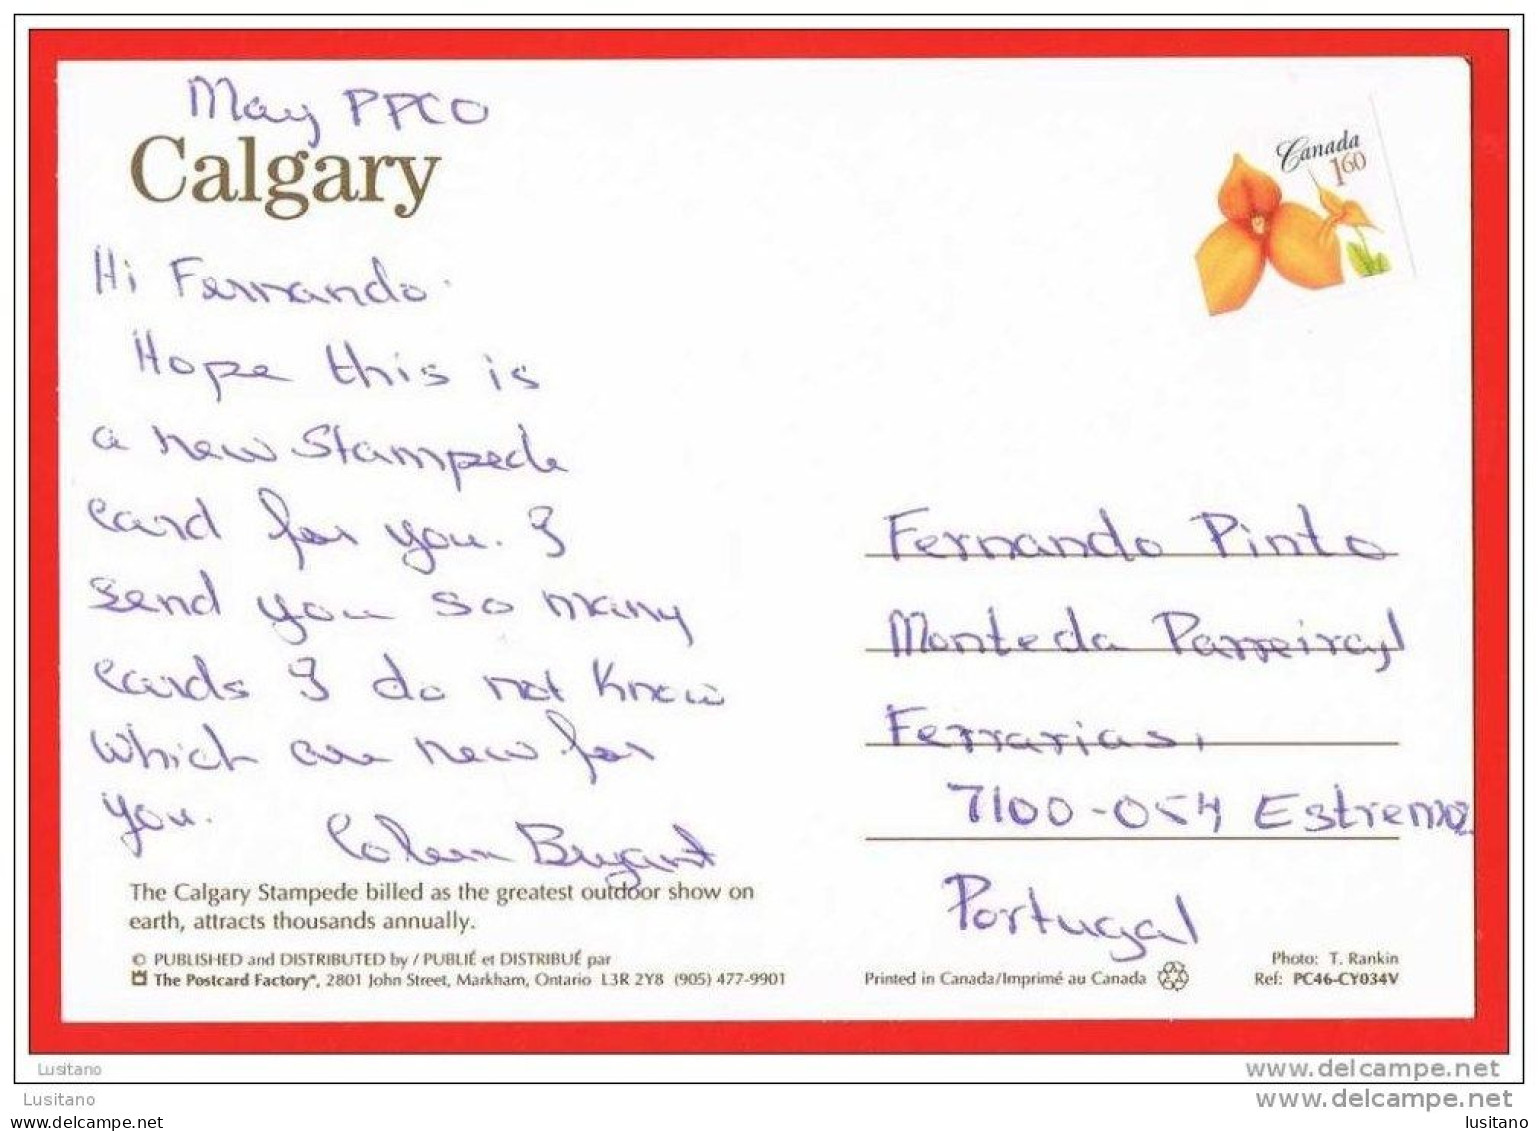 May PPCO
Calgary
Canada
1.60
Hi Fernando.
Hope this is
a new Stampede
card for you. I
send you so many
cards I do not know
which are new for
you.
Coleen Bryant
Fernando Pinto
Monte da Parreira,
Ferrarias,
7100-054 Estremoz
Portugal
The Calgary Stampede billed as the greatest outdoor show on
earth, attracts thousands annually.
© PUBLISHED and DISTRIBUTED by / PUBLIÉ et DISTRIBUÉ par
The Postcard Factory®, 2801 John Street, Markham, Ontario L3R 2Y8 (905) 477-9901
Printed in Canada/Imprimé au Canada
Photo: T. Rankin
Ref: PC46-CY034V
Lusitano
www.delcampe.net
Lusitano
www.delcampe.net
www.delcampe.net
lusitano